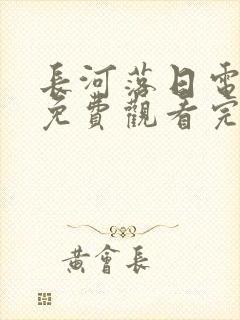 長河落日電
免費觀看完
黃會長